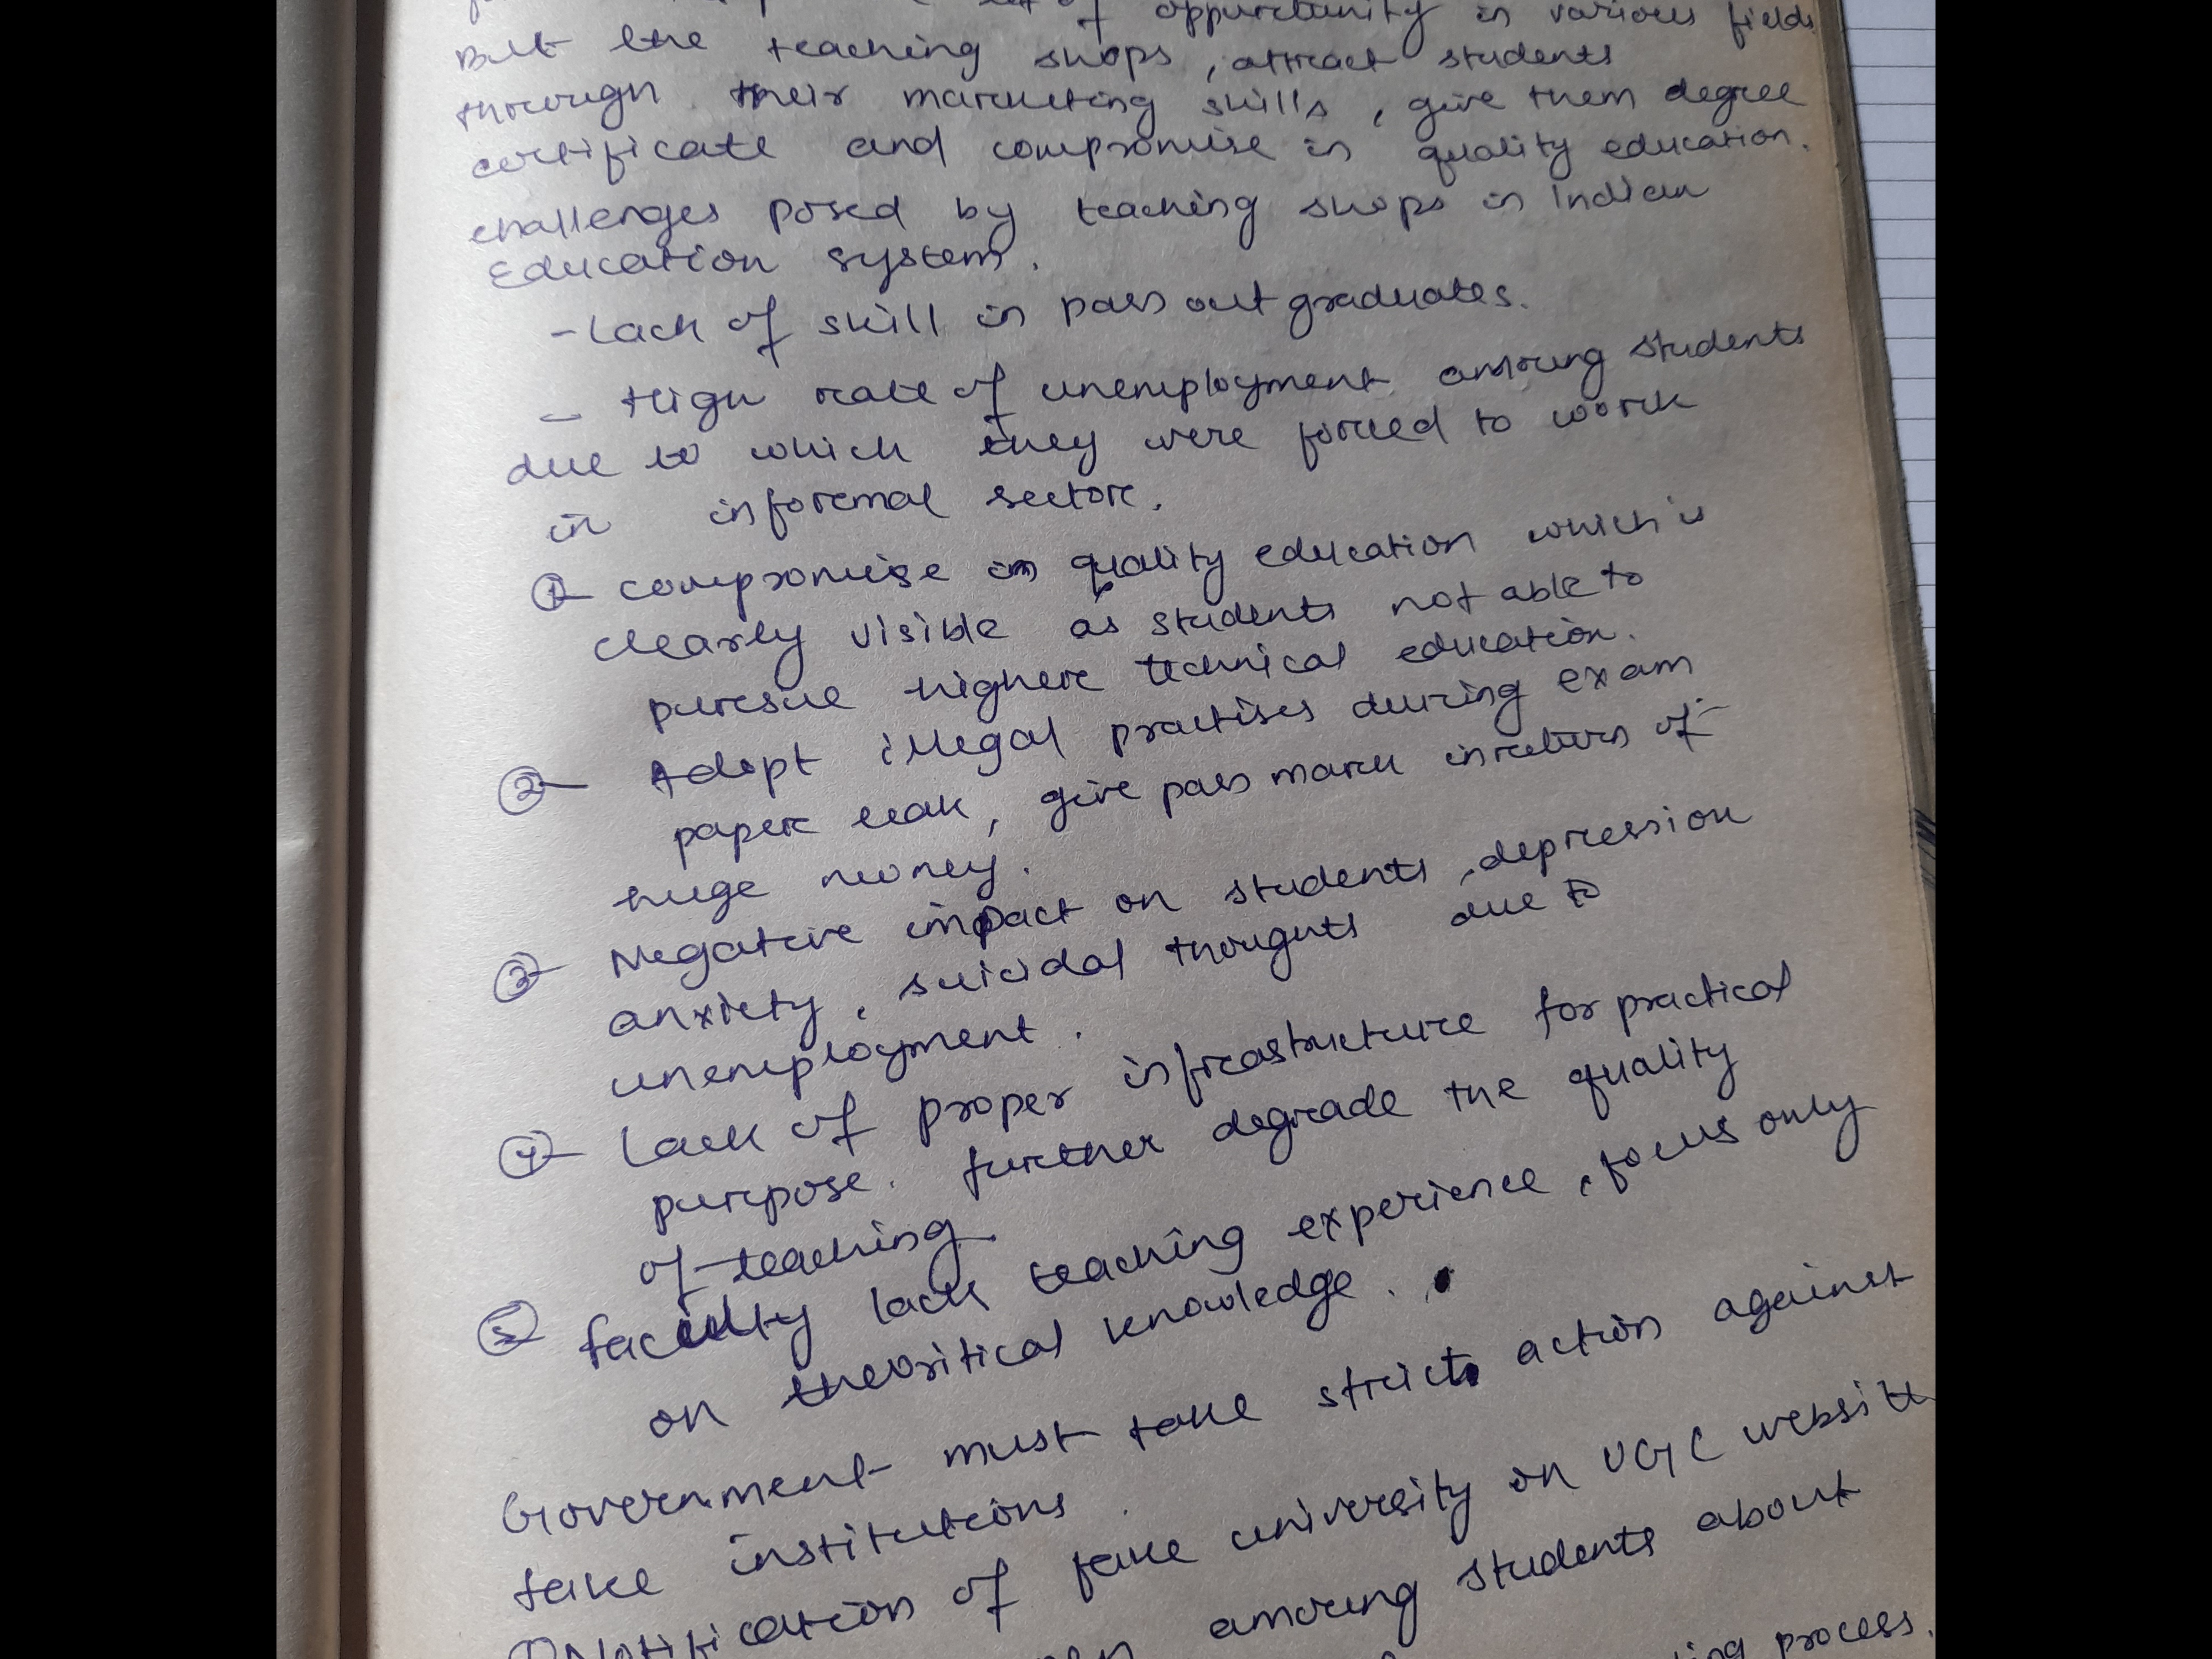 of oppurtunity in various fields
But the teaching shops, attract students
through their marketing skills, give them degree
certificate and compromise in quality education.
challenges posed by teaching shops in Indian
Education system.
- Lack of skill in pass out graduates.
- High rate of unemployment among students
due to which they were forced to work
in informal sector.
① compromise in quality education which is
clearly visible as students not able to
pursue higher technical education.
② Adopt illegal practises during exam
paper leak, give pass mark in return of
huge money.
③ Negative impact on students, depression
anxiety, suicidal thoughts due to
unemployment.
④ Lack of proper infrastructure for practical
purpose. further degrade the quality
of teaching
⑤ faculty lack teaching experience, focus only
on theoritical knowledge.
Government must take strict action against
fake institutions.
① Notification of fake university on UGC website
among students about
process.